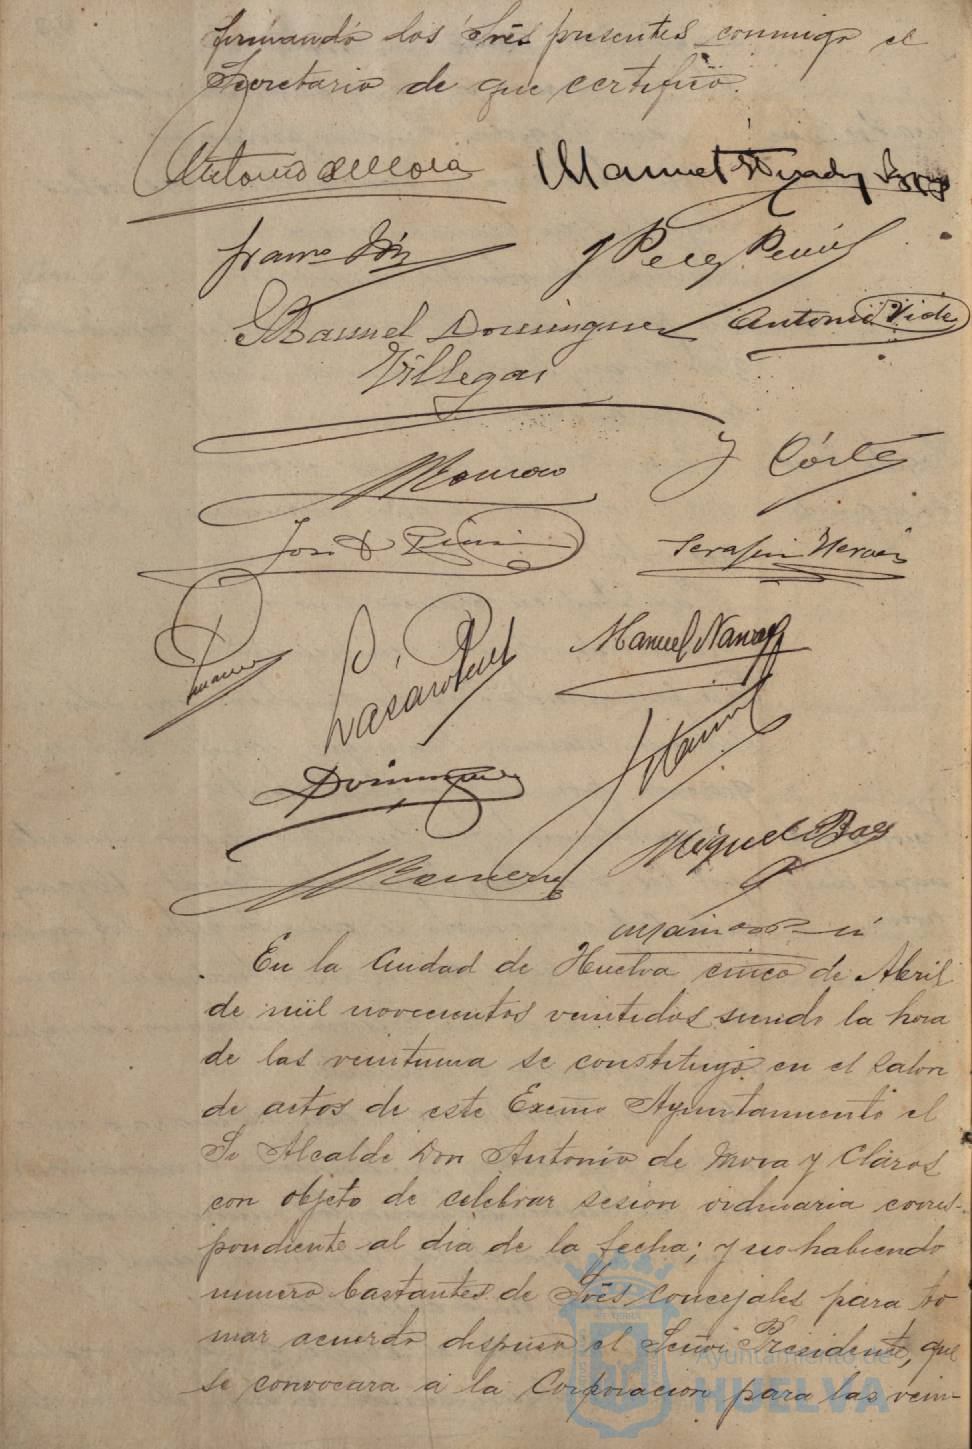 firmando los Sres presentes conmigo el
Secretario de que certifico.
Antonio de Mora
Manuel
Franco
J Perez
Manuel Dominguez
Antonio Vides
Villegas
J Cortes
Jose
Serafin
Lazaro Perez
Manuel Navarro
Dominguez
Miguel Baez
En la Ciudad de Huelva cinco de Abril
de mil novecientos veintidos siendo la hora
de las veintiuna se constituyó en el salon
de actos de este Excmo Ayuntamiento el
Sr Alcalde Don Antonio de Mora y Claros
con objeto de celebrar sesion ordinaria corres-
pondiente al dia de la fecha; y no habiendo
numero bastantes de Sres Concejales para to
mar acuerdo dispuso el Señor Presidente, que
se convocara á la Corporacion para las vein-
Ayuntamiento de
HUELVA